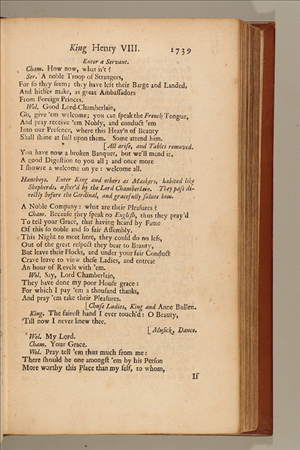 King Henry VIII. 1739
Enter a Servant.
Cham. How now, what is't?
Ser. A noble Troop of Strangers,
For so they seem; they have left their Barge and Landed,
And hither make, as great Ambassadors
From Foreign Princes.
Wol. Good Lord-Chamberlain,
Go, give 'em welcome; you can speak the French Tongue,
And pray receive 'em Nobly, and conduct 'em
Into our Presence, where this Heav'n of Beauty
Shall shine at full upon them. Some attend him.
[All arise, and Tables removed.
You have now a broken Banquet, but we'll mend it.
A good Digestion to you all; and once more
I showre a welcome on ye: welcome all.
Hautboys. Enter King and others as Maskers, habited like
Shepherds, usher'd by the Lord Chamberlain. They pass di-
rectly before the Cardinal, and gracefully salute him.
A Noble Company: what are their Pleasures?
Cham. Because they speak no English, thus they pray'd
To tell your Grace, that having heard by Fame
Of this so noble and so fair Assembly,
This Night to meet here, they could do no less,
Out of the great respect they bear to Beauty,
But leave their Flocks, and under your fair Conduct
Crave leave to view these Ladies, and entreat
An hour of Revels with 'em.
Wol. Say, Lord Chamberlain,
They have done my poor House grace:
For which I pay 'em a thousand thanks,
And pray 'em take their Pleasures.
[Chuse Ladies, King and Anne Bullen.
King. The fairest hand I ever touch'd: O Beauty,
'Till now I never knew thee.
[Musick, Dance.
Wol. My Lord.
Cham. Your Grace.
Wol. Pray tell 'em thus much from me:
There should be one amongst 'em by his Person
More worthy this Place than my self, to whom,
If